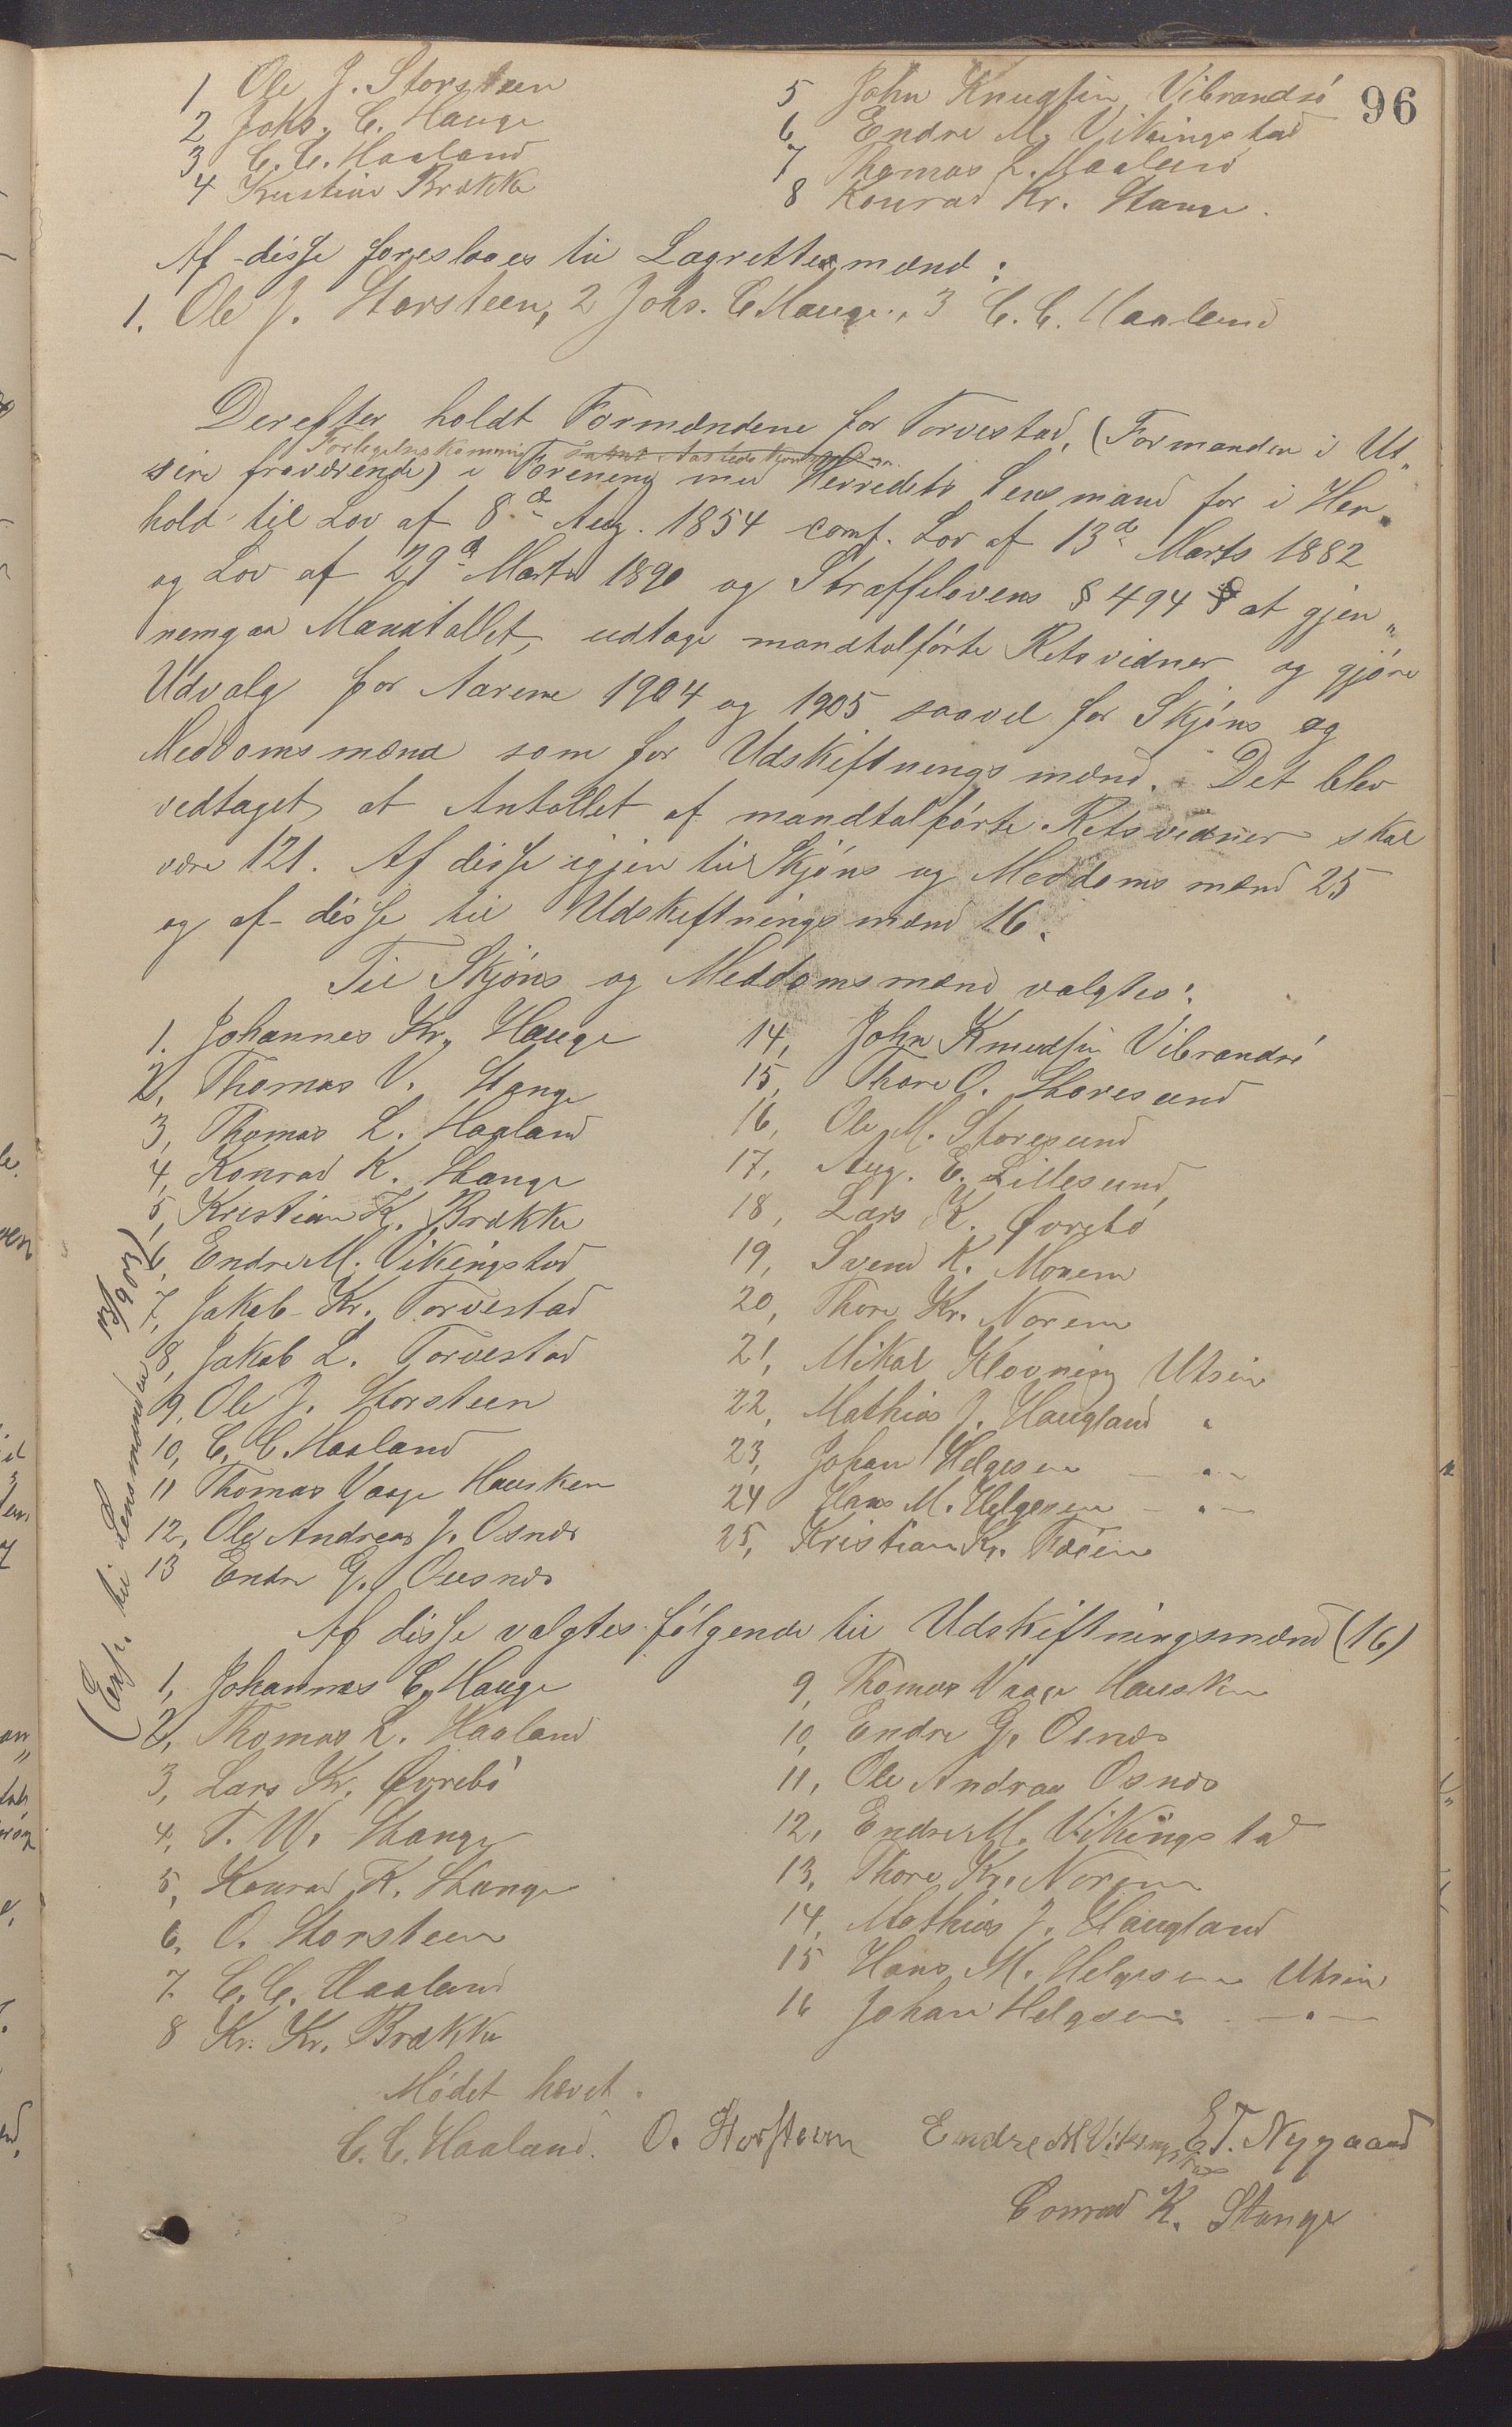 96
1 Ole J. Storsteen
2 Johs. C. Hauge
3 C. C. Haaland
4 Kristian Brække
5 John Knudsen Vibrandsö
6 Endre M. Vikingstad
7 Thomas L. Haaland
8 Konrad Kr. Stange.
Af disse foreslaaes til Lagrettesmænd:
1. Ole J. Storsteen, 2 Johs. C Hauge., 3 C. C. Haaland
Derefter holdt Formændene for Torvestad, (Formanden i Ut„
sire fraværende) i Forening med Herredets Lensmand for i Hen„
hold til Lov af 8de Aug. 1854 comf. Lov af 13de Marts 1882
og Lov af 29d Marts 1890 og Straffelovens § 494 at gjen„
nemgaa Mandtallet, udtage mandtalførte Retsvidner og gjøre
Udvalg for Aarene 1904 og 1905 saavel for Skjöns og
Meddomsmænd som for Udskiftningsmænd. Det blev
vedtaget at Antallet af mandtalførte Retsvidner skal
være 121. Af disse igjen til Skjöns og Meddoms mænd 25
og af disse til Udskiftningsmænd 16.
Til Skjöns og Meddomsmænd valgtes:
1. Johannes Kr. Hauge
2, Thomas V. Stange
3, Thomas L. Haaland
4, Konrad K. Stange
5, Kristian K. Brække
6, Endre M. Vikingstad
7, Jakob Kr. Torvestad
8, Jakob L. Torvestad
9, Ole J. Storsteen
10, C. C. Haaland
11 Thomas Vaage Hausken
12, Ole Andreas J. Osnes
13 Endre G. Ousnes
14, John Knudsen Vibrandsö
15, Thore O. Storesund
16, Ole M. Storesund
17, Aug. E. Lillesund
18, Lars K. Øvrebö
19, Svend K. Monen
20, Thore Kr. Norem
21, Mikal Klovning Utsire
22, Mathias J. Haugland "
23, Johan Helgesen — " —
24 Hans M. Helgesen — " —
25, Kristian Kr.
(Exp. til Lensmanden
Af disse valgtes følgende til Udskiftningsmænd (16)
1, Johannes C. Hauge
2, Thomas L. Haaland
3, Lars Kr. Øvrebö
4, T. W. Stange
5, Konrad K. Stange
6, O. Storsteen
7. C. C. Haaland
8 Kr. Kr. Brække
9, Thomas Vaage Hausken
10, Endre G. Osnes
11, Ole Andreas Osnes
12, Endre M. Vikingstad
13, Thore Kr. Norem
14, Mathias J. Haugland
15 Hans M. Helgesen Utsire
16 Johan Helgsen — " —
Mödet hævet.
C. C. Haaland. O. Storsteen Endre M Vikingstad E T. Nygaard
Conrad K. Stange